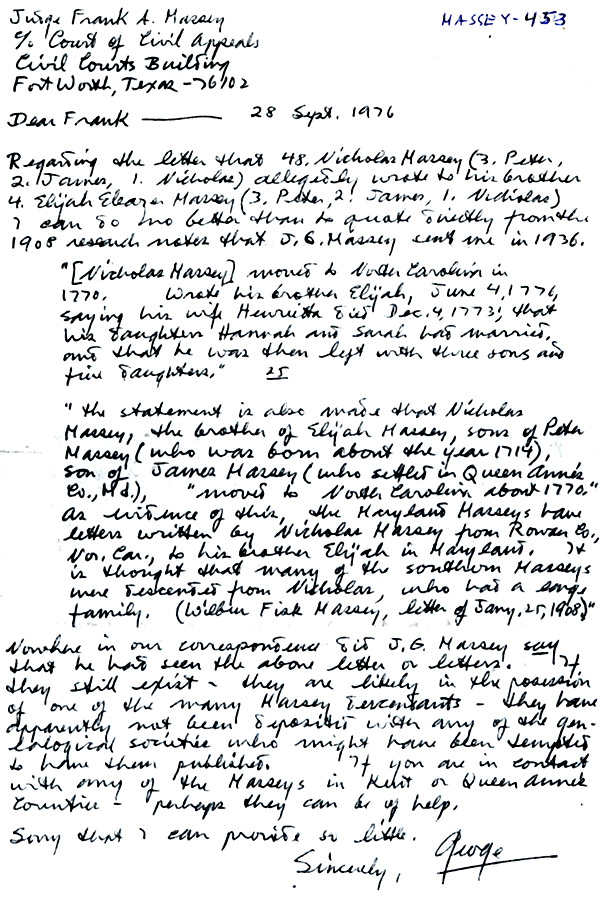 Judge Frank A. Massey
MASSEY-453
c/o Court of Civil Appeals
Civil Courts Building
Fort Worth, Texas - 76102
28 Sept. 1976
Dear Frank
Regarding the letter that 48. Nicholas Massey (3. Peter,
2. James, 1. Nicholas) allegedly wrote to his brother
4. Elijah Eleazer Massey (3. Peter, 2. James, 1. Nicholas)
I can do no better than to quote directly from the
1908 research notes that J.G. Massey sent me in 1936.
"[Nicholas Massey] moved to North Carolina in
1770. Wrote his brother Elijah, June 4, 1776,
saying his wife Henrietta died Dec. 4, 1773; that
his daughters Hannah and Sarah had married,
and that he was then left with three sons and
five daughters." 25
"the statement is also made that Nicholas
Massey, the brother of Elijah Massey, sons of Peter
Massey (who was born about the year 1714),
son of James Massey (who settled in Queen Anne's
Co., Md.), "moved to North Carolina about 1770."
As evidence of this, the Maryland Masseys have
letters written by Nicholas Massey from Rowan Co.,
Nor. Car., to his brother Elijah in Maryland. It
is thought that many of the southern Masseys
were descended from Nicholas, who had a large
family. (Wilbur Fisk Massey, letter of Jany. 25, 1908)"
Nowhere in our correspondence did J.G. Massey say
that he had seen the above letter or letters. If
they still exist - they are likely in the possession
of one of the many Massey descendants - they have
apparently not been deposited with any of the gen-
ealogical societies who might have been tempted
to have them published. If you are in contact
with any of the Masseys in Kent or Queen Anne's
Counties - perhaps they can be of help.
Sorry that I can provide so little.
Sincerely, George